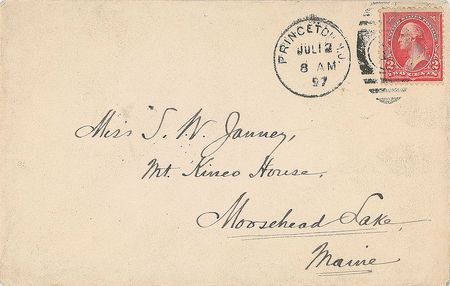 PRINCETON, N.J.
JUL 12
8 AM
97
2 2
TWO CENTS
Miss S. W. Janney,
Mt. Kineo House,
Moosehead Lake,
Maine